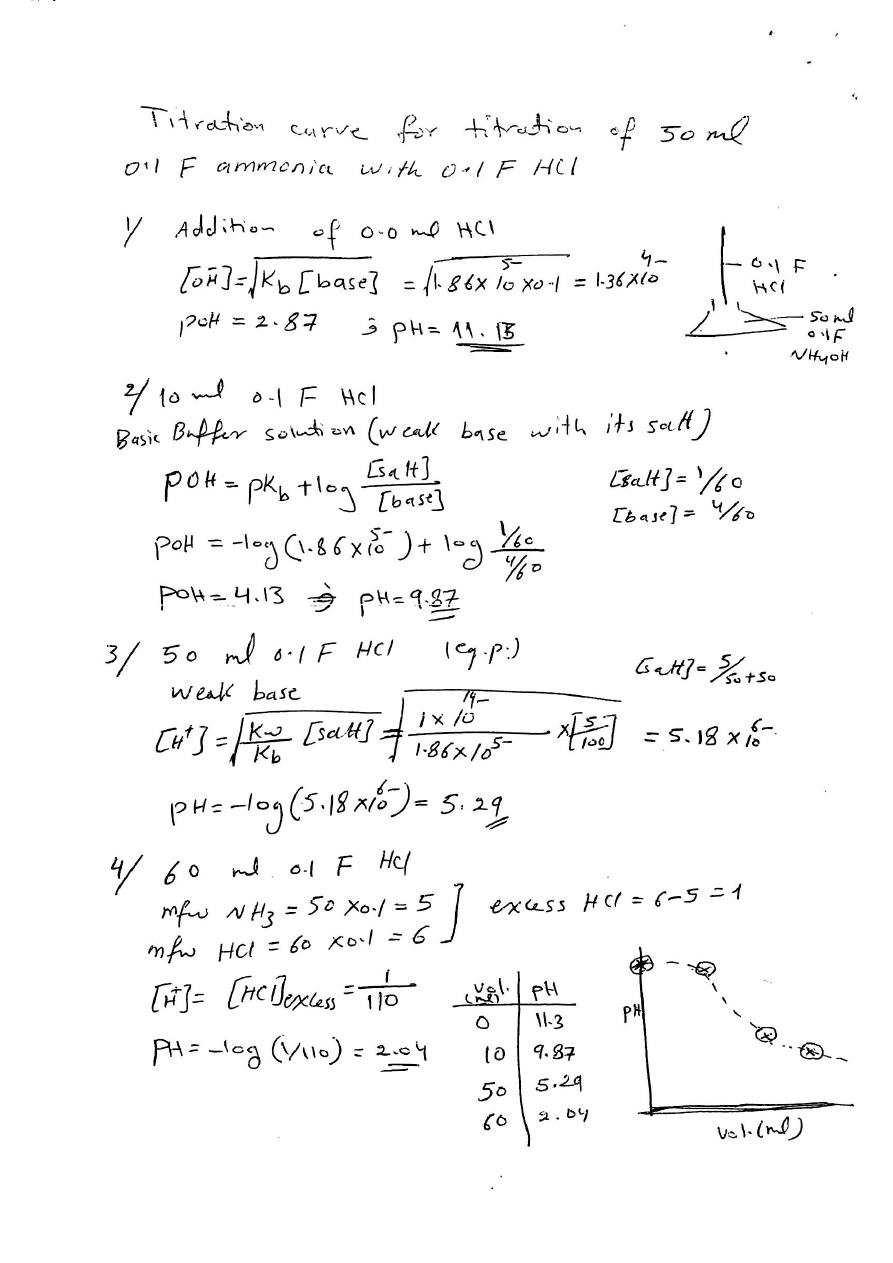 Titration curve for titration of 50 ml
0.1 F ammonia with 0.1 F HCl
1/ Addition of 0.0 ml HCl
[OH̄]=√Kb [base] = √1.86×10⁵⁻×0.1 = 1.36×10⁴⁻
0.1 F
HCl
50 ml
0.1F
NH4OH
pOH = 2.87 ; pH= 11.13
2/ 10 ml 0.1 F HCl
Basic Buffer solution (weak base with its salt)
POH = pKb + log [salt]/[base]
[salt] = 1/60
[base] = 4/60
POH = -log (1.86×10⁵⁻) + log (1/60)/(4/60)
POH = 4.13 ; pH= 9.87
3/ 50 ml 0.1 F HCl (eq.p.)
weak base
[salt] = 5/50+50
[H⁺] = √Kw/Kb [salt] = √1×10¹⁴⁻/1.86×10⁵⁻ ×[5/100] = 5.18×10⁶⁻
pH= -log(5.18×10⁶⁻) = 5.29
4/ 60 ml 0.1 F HCl
mfw NH3 = 50 ×0.1 = 5
mfw HCl = 60 ×0.1 = 6
] excess HCl = 6-5 = 1
[H⁺]= [HCl]excess = 1/110
PH = -log (1/110) = 2.04
Vol. (ml) | pH
0 | 11.3
10 | 9.87
50 | 5.29
60 | 2.04
PH
Vol.(ml)